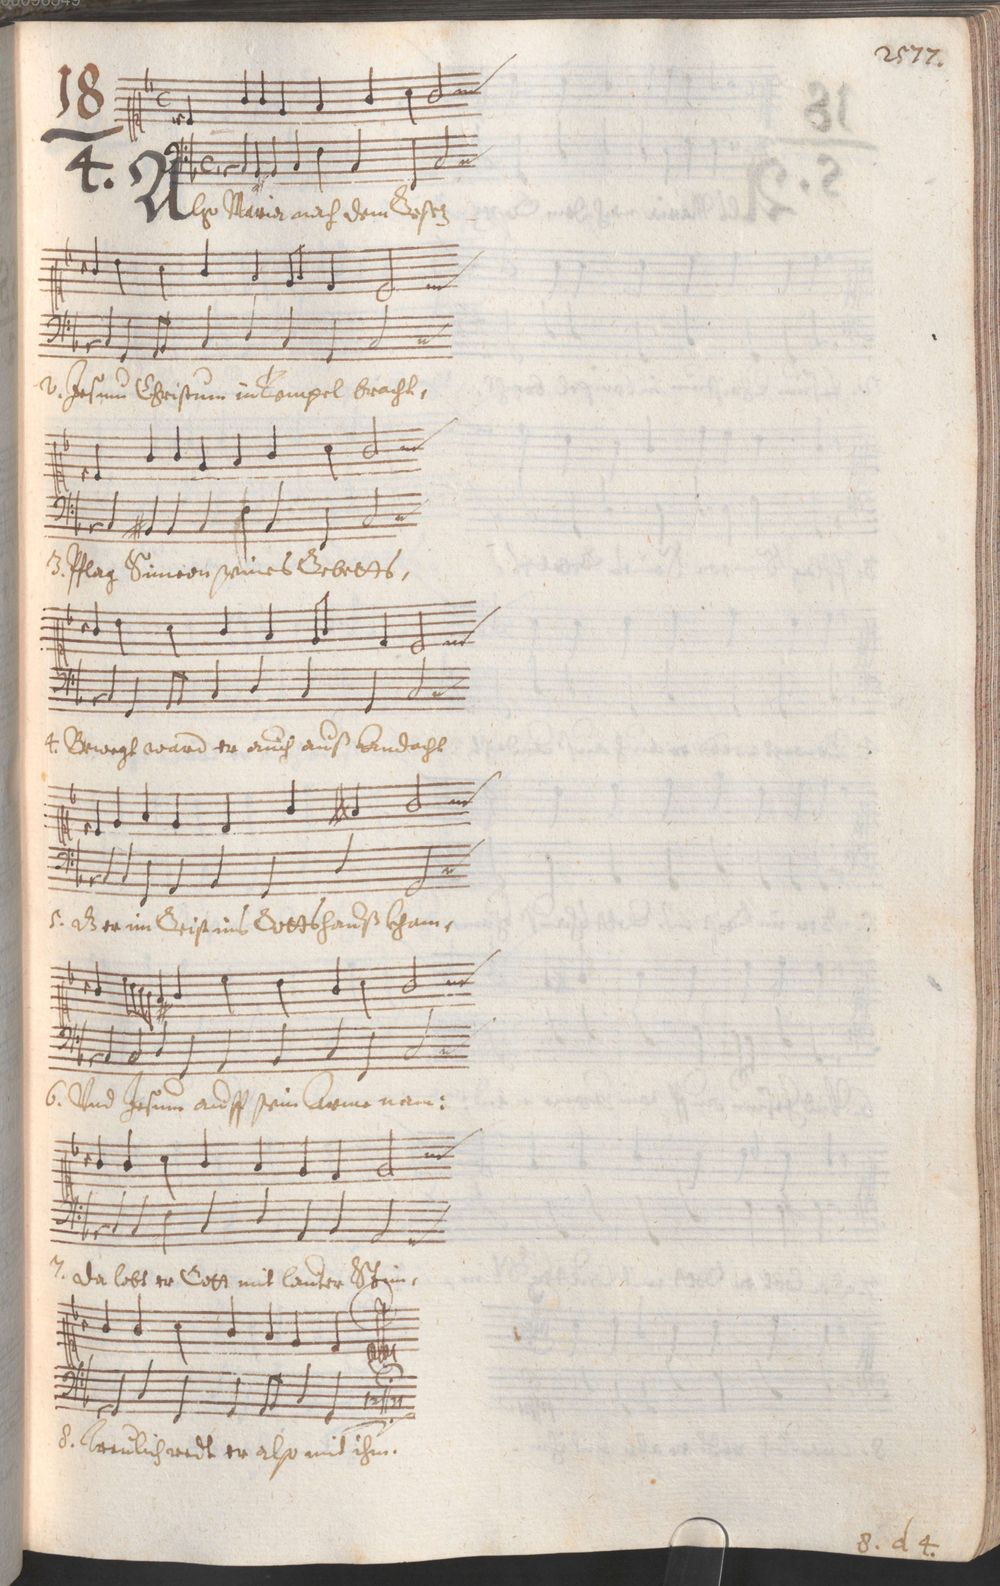 2577.
18
4.
Also Maria nach dem Gesetz
2. Jesum Christum in Tempel bracht,
3. Pflag Simeon seines Gebetts,
4. Bewegt ward er auch auß Andacht
5. Dz er im Geist ins Gottshauß kham,
6. Vnd Jesum auff sein Arme nam:
7. Da lobt er Gott mit lauter Stim,
8. Treulich redt er also mit ihm.
8. d 4.